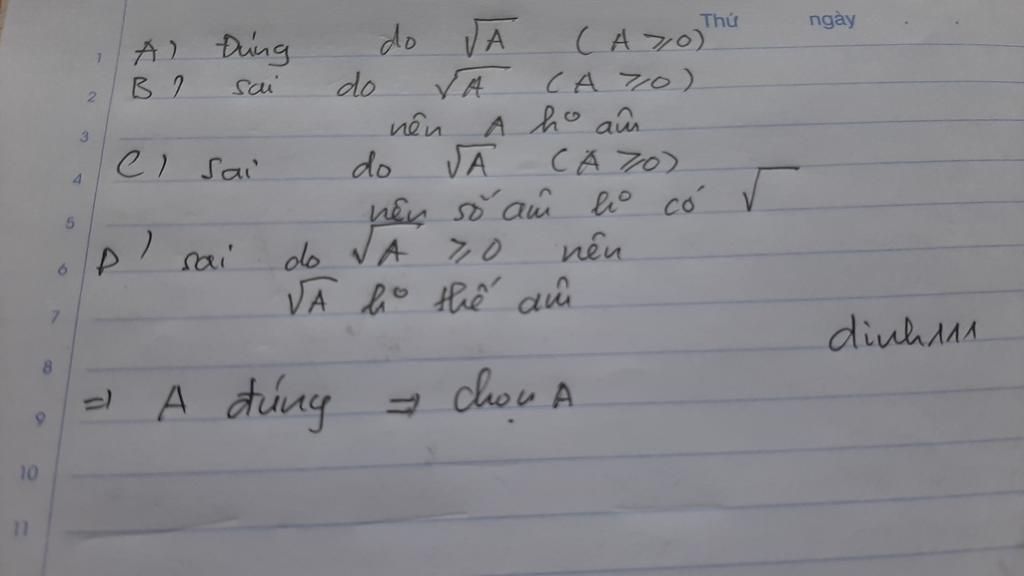 Thứ ngày . .
1 A) Đúng do √A (A ≥ 0)
2 B) sai do √A (A ≥ 0)
3 nên A ko âm
4 C) sai do √A (A ≥ 0)
5 nên số âm ko có √
6 D) sai do √A ≥ 0 nên
7 √A ko thế âm
dinh111
8
9 => A đúng => chọn A
10
11